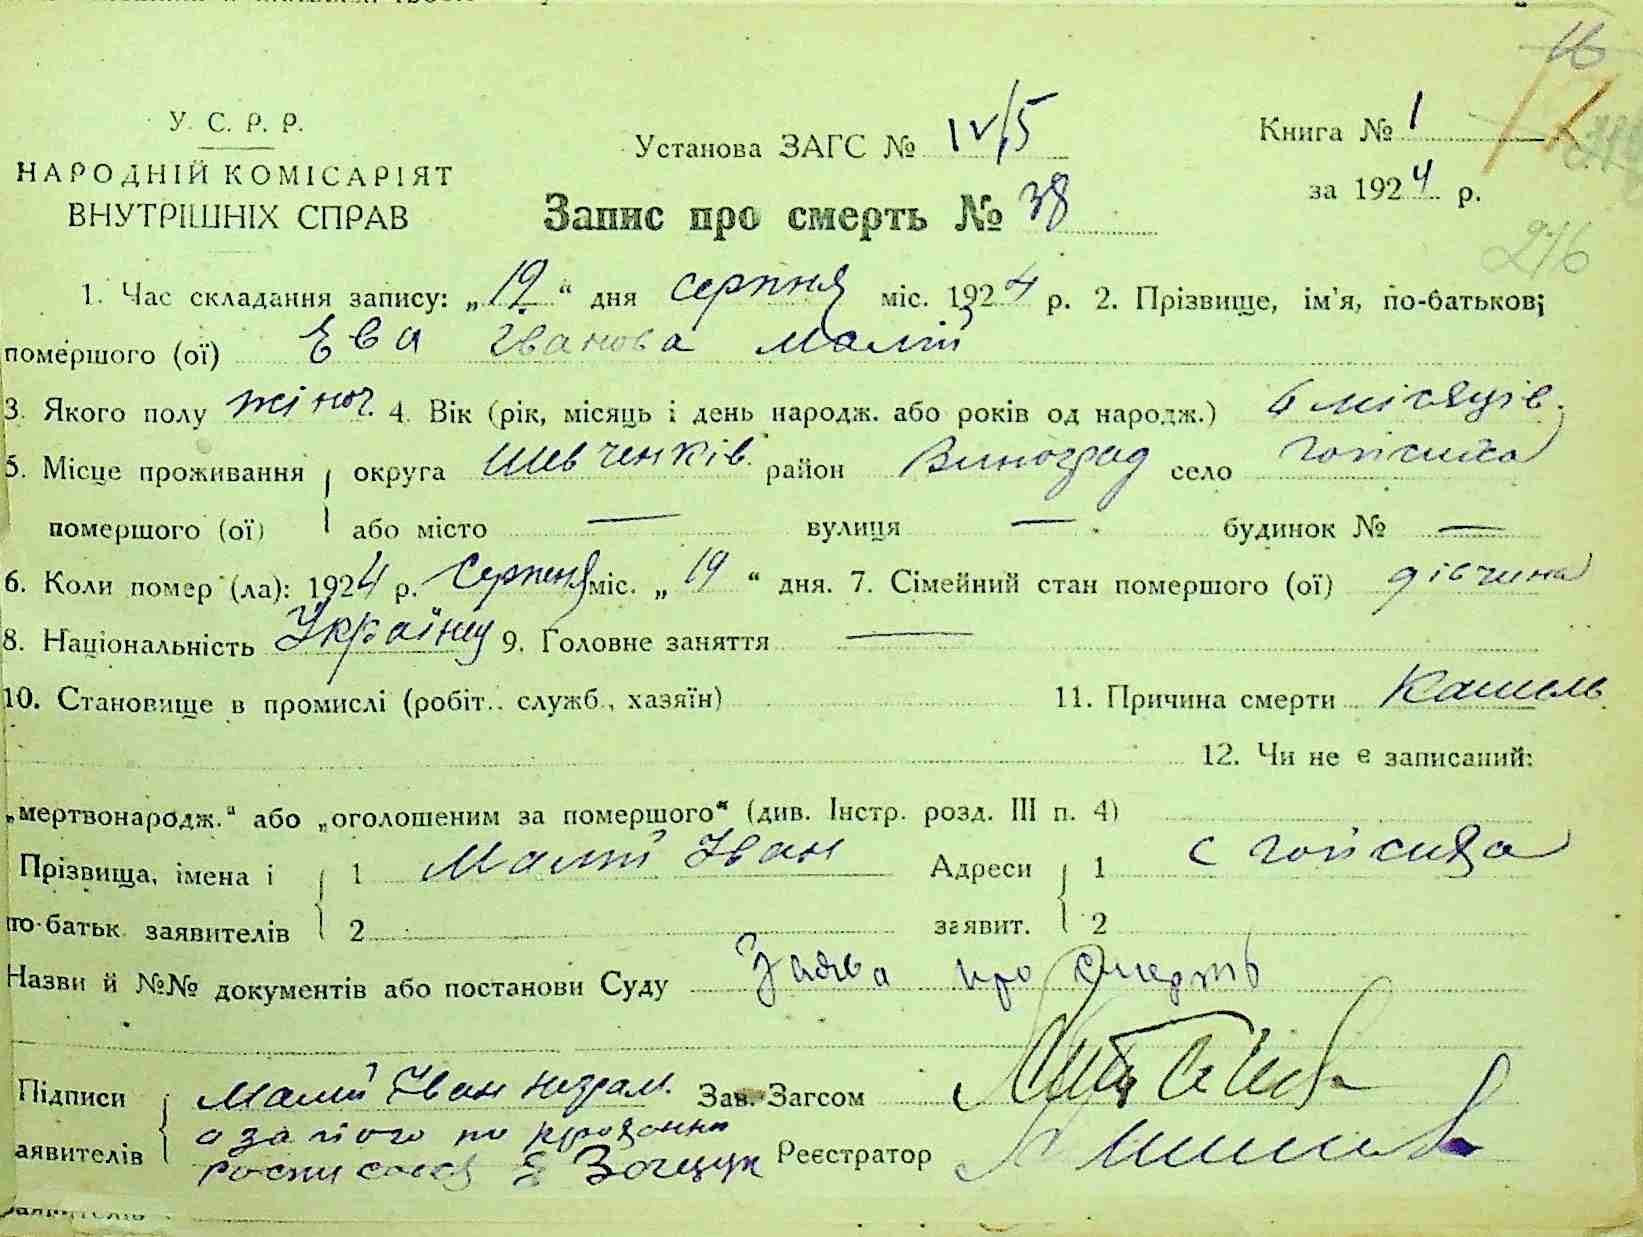 У. С. Р. Р.
НАРОДНІЙ КОМІСАРІЯТ
ВНУТРІШНІХ СПРАВ
Установа ЗАГС № IV/5
Книга № 1
за 1924 р.
Запис про смерть № 38
216
1. Час складання запису: „19“ дня серпня міс. 1924 р. 2. Прізвище, ім'я, по-батькові
помершого (ої) Ева Іванова Малій
3. Якого полу жіноч. 4. Вік (рік, місяць і день народж. або років од народж.) 6 місяців.
5. Місце проживання округа Шевченків. район Виноград село
помершого (ої) або місто — вулиця — будинок № —
6. Коли помер (ла): 1924 р. Серпня міс. „19“ дня. 7. Сімейний стан помершого (ої) дівчина
8. Національність Українц 9. Головне заняття —
10. Становище в промислі (робіт.. служб., хазяїн) 11. Причина смерти Кашель
12. Чи не є записаний:
„мертвонародж.“ або „оголошеним за помершого“ (див. Інстр. розд. III п. 4)
Прізвища, імена і 1 Малій Іван Адреси 1 с
по-батьк. заявителів 2 заявит. 2
Назви й №№ документів або постанови Суду Заява про смерть
Підписи Малій Іван Зав. Загсом
аявителів а за його Реєстратор